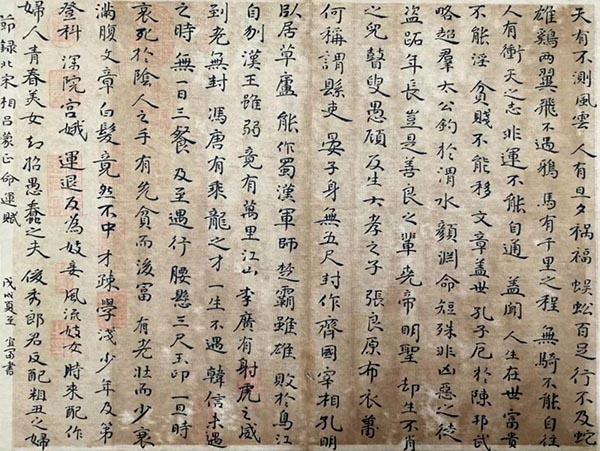 天有不測風雲人有旦夕禍福蜈蚣百足行不及蛇
雄鷄兩翼飛不過鴉馬有千里之程無騎不能自往
人有衝天之志非運不能自通蓋聞人生在世富貴
不能淫貧賤不能移文章蓋世孔子厄於陳邦武
略超羣太公釣於渭水顏淵命短殊非凶惡之徒
盜跖年長豈是善良之輩堯帝明聖却生不肖
之兒瞽叟愚頑反生大孝之子張良原布衣蕭
何稱謂縣吏晏子身無五尺封作齊國宰相孔明
臥居草廬能作蜀漢軍師楚霸雖雄敗於烏江
自刎漢王雖弱竟有萬里江山李廣有射虎之威
到老無封馮唐有乘龍之才一生不遇韓信未遇
之時無日三餐及至遇行腰懸三尺玉印一旦時
衰死於陰人之手有先貧而後富有老壯而少衰
滿腹文章白髮竟然不中才疎學淺少年及第
登科深院宮娥運退反為妓妾風流妓女時來配作
婦人青春美女却招愚蠢之夫俊秀郎君反配粗丑之婦
節錄北宋相呂蒙正命運賦 戊戌夏至 宜富書